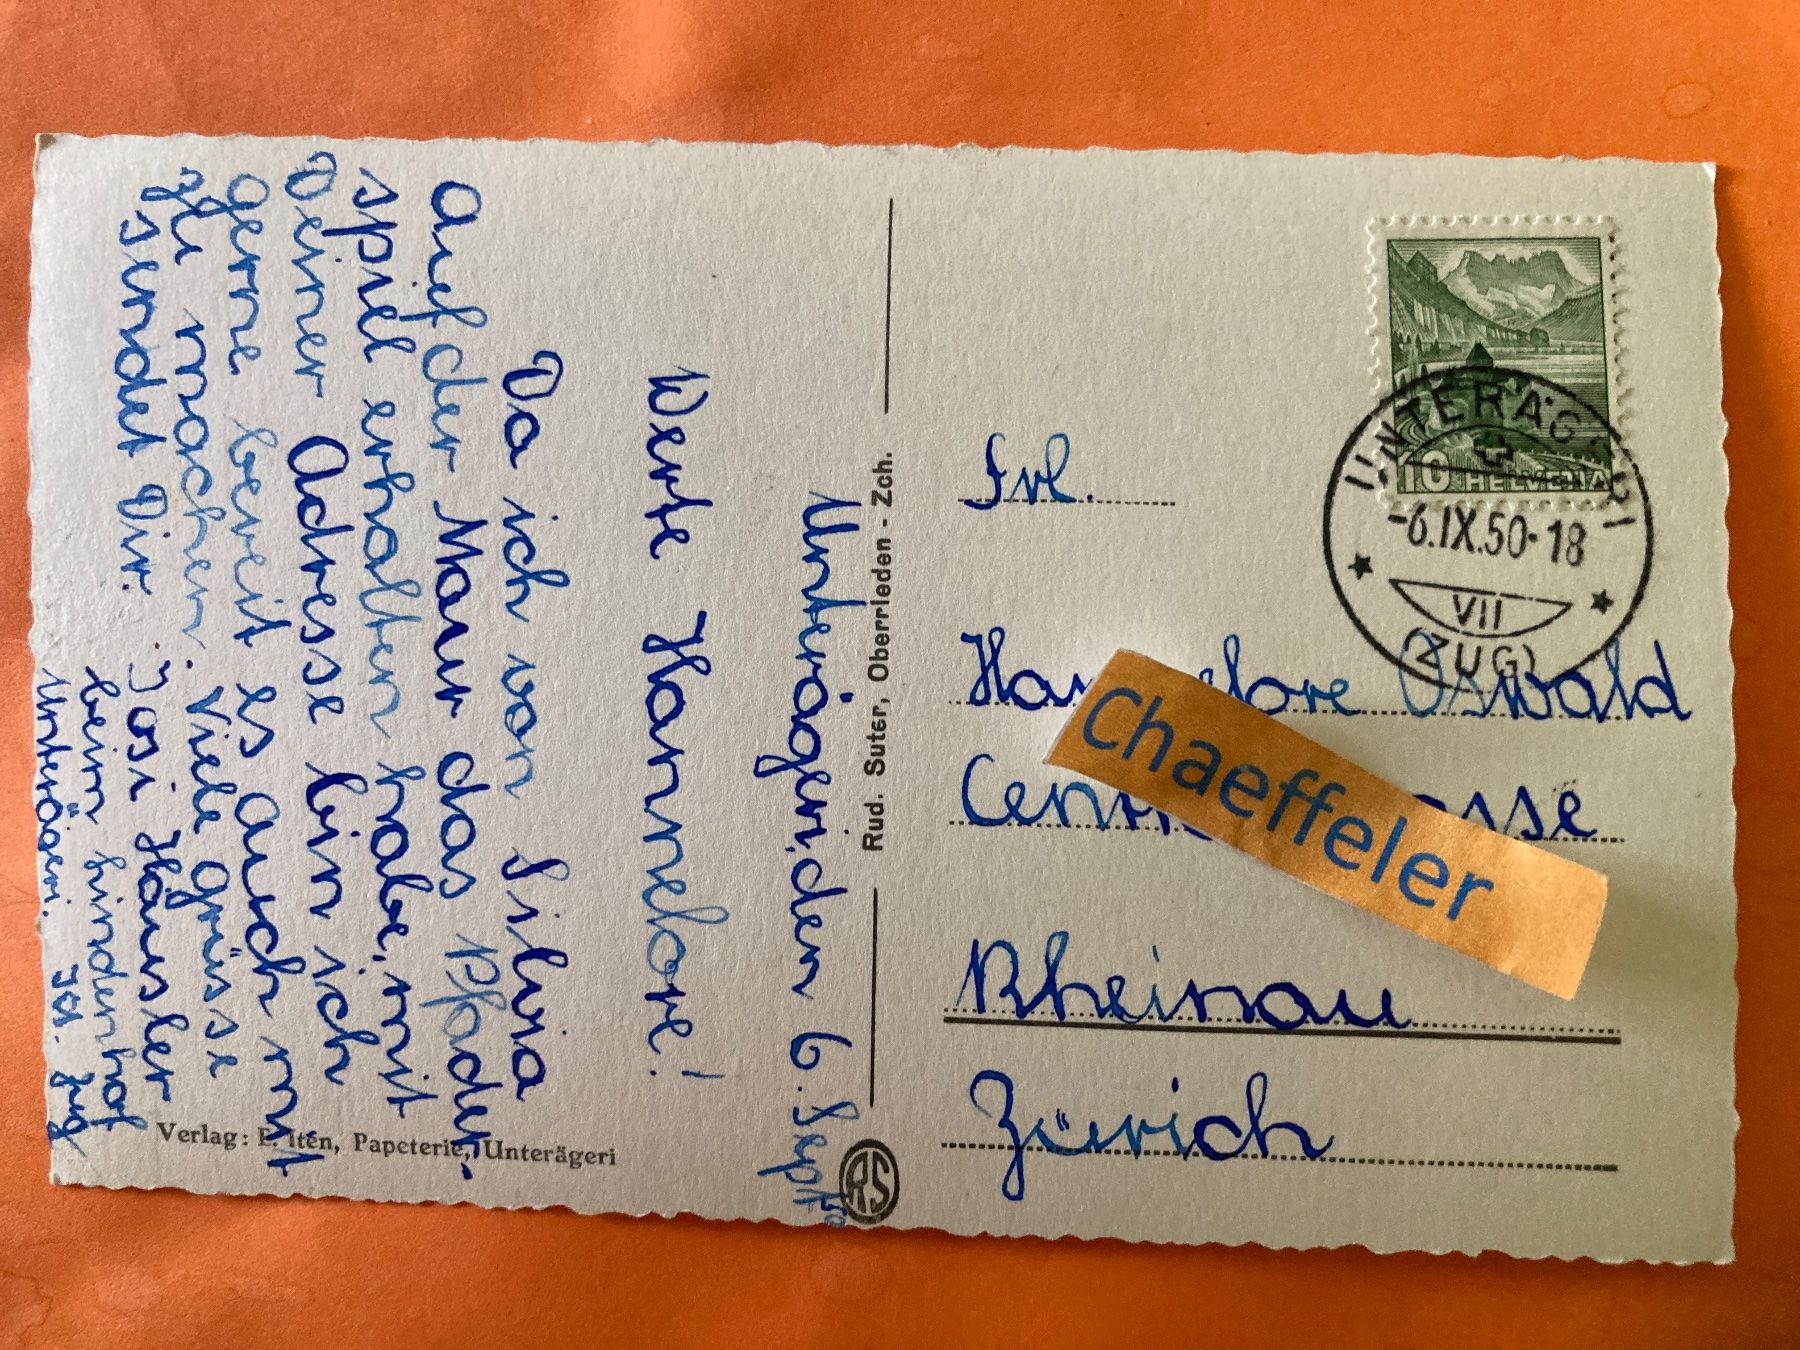 Unterägeri, den 6. Sept. 50
Werte Hannelore!
Da ich von Silvia
auf der Maur das Pfader-
spiel erhalten habe, mit
Deiner Adresse bin ich
gerne bereit es auch mit
zu machen. Viele Grüsse
sendet Dir. Josi Häusler
beim hinderhof
Unterägeri. Kt. Zug
Verlag: E. Iten, Papeterie, Unterägeri
Rud. Suter, Oberrieden - Zch.
RS
10 HELVETIA
UNTERÄGERI
-6.IX.50-18
VII
(ZUG)
Frl.
Oswald
Chaeffeler
Rheinau
Zürich